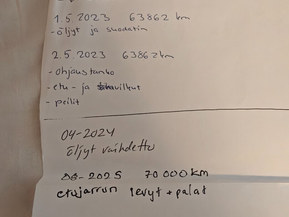 1.5.2023 63862 km
- öljyt ja suodatin
2.5.2023 63862km
- ohjaustanko
- etu- ja vilkut
- peilit
04-2024
öljyt vaihdettu
2025 70 000 km
etujarrun levyt + palat